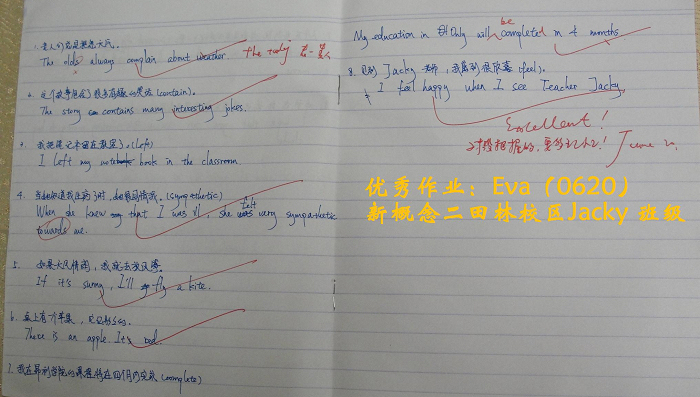 1. 老人们总是抱怨天气。
The olds always complain about weather. the
2. 这个故事包含了很多有趣的笑话 (contain).
The story contains many interesting jokes.
3. 我把笔记本留在教室了. (left)
I left my note book in the classroom.
4. (sympathetic)
felt
When she knew that I was ill, she was very sympathetic
towards me.
5. 如果天气晴朗, 我就去放风筝.
If it's sunny, I'll fly a kite.
6. 桌上有个苹果, 它是红的.
There is an apple. It's red.
7. 我在昂立学院的课程将在四个月内完成 (complete)
be
My education in Only will completed in 4 months.
8. 见到 Jacky 老师, 我感到很欣喜 (feel).
I feel happy when I see Teacher Jacky.
Excellent!
June
优秀作业：Eva（0620）
新概念二田林校区Jacky 班级